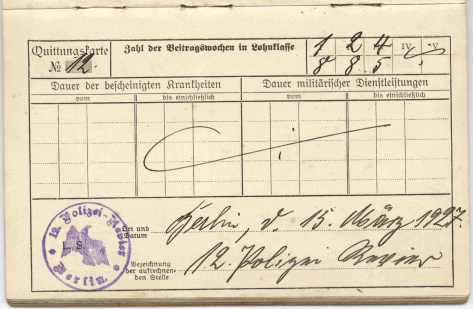 Quittungskarte
№ 12.
Zahl der Beitragswochen in Lohnklasse
1 2 4 IV V
8 8 5
Dauer der bescheinigten Krankheiten
Dauer militärischer Dienstleistungen
vom
bis einschließlich
vom
bis einschließlich
12. Polizei-Revier
Berlin.
L. S.
Ort und
Datum
Berlin, d. 15. März 1927.
Bezeichnung
der aufrechnen-
den Stelle
12. Polizei Revier